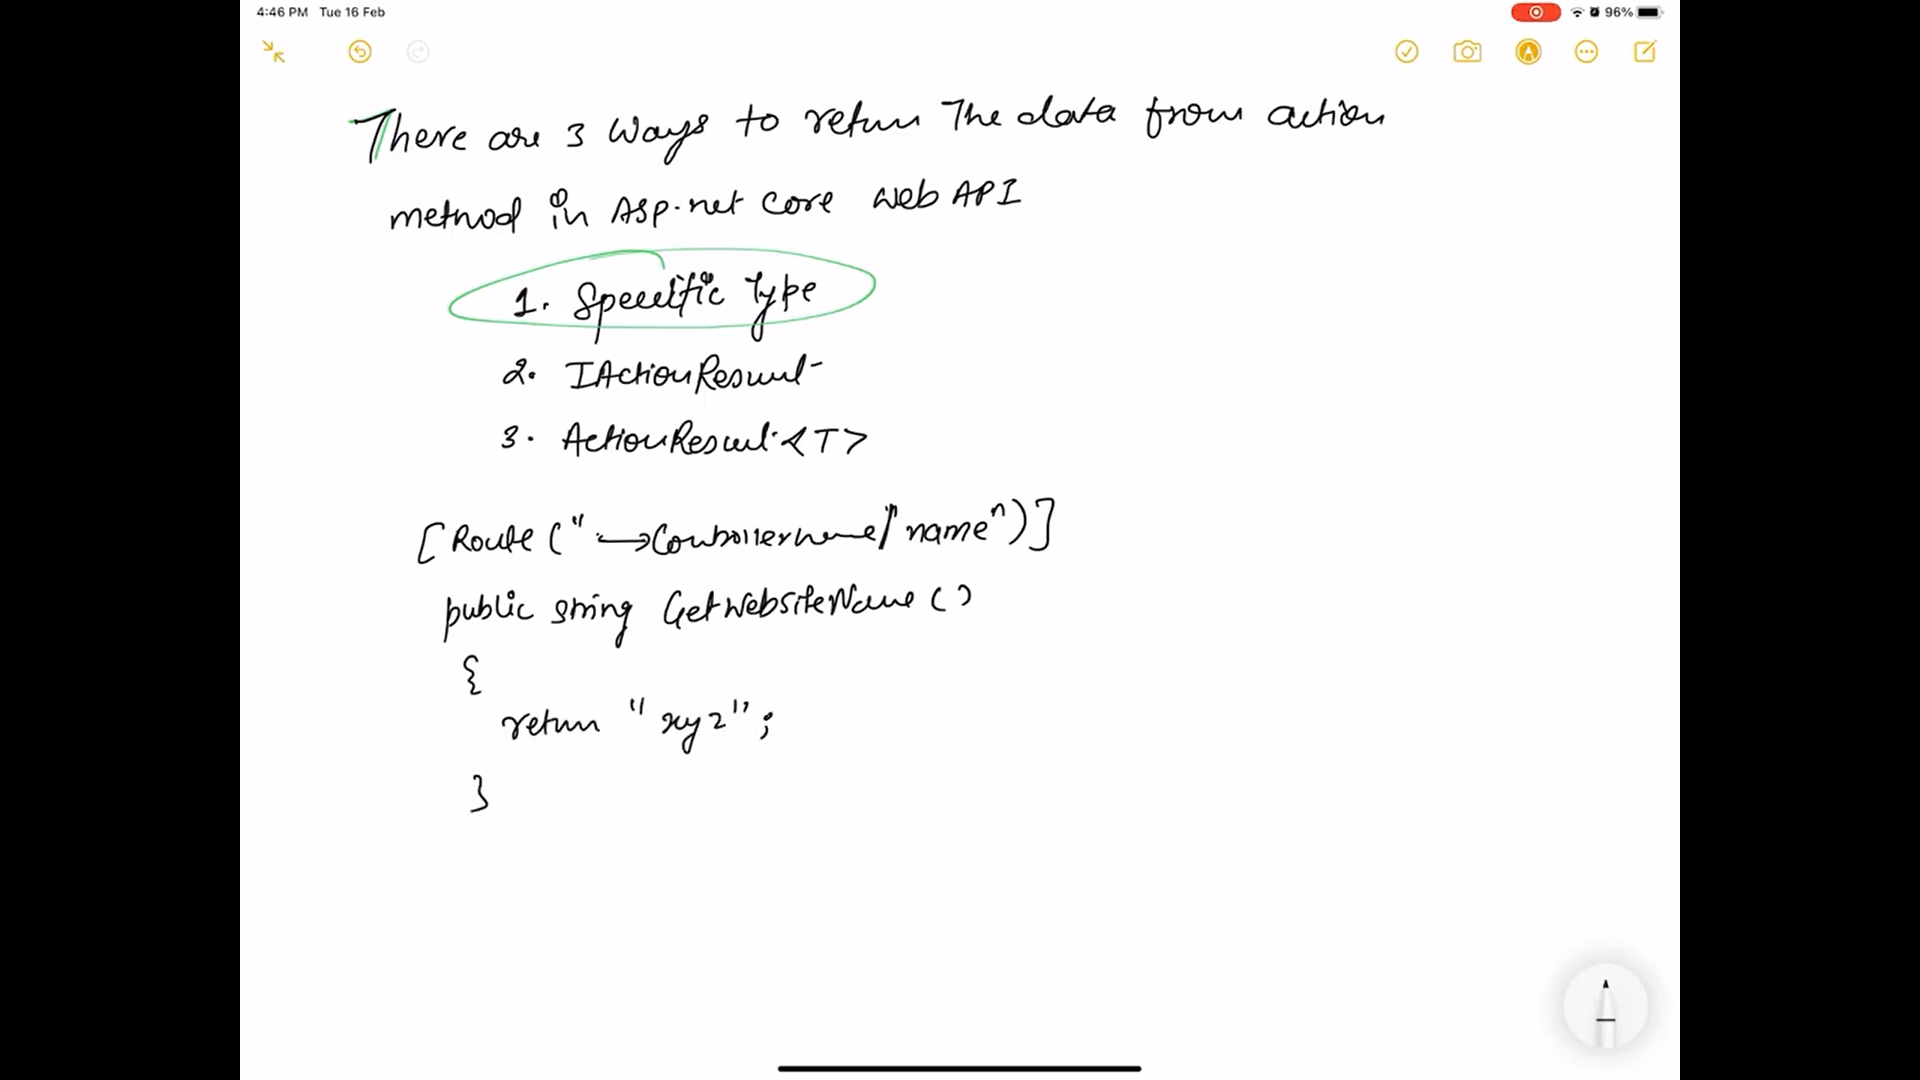 4:46 PM Tue 16 Feb
96%
There are 3 ways to return The data from action
method in Asp.net core web API
1. Specific Type
2. IActionResult
3. ActionResult<T>
[Route("→Controllername/"name")]
public string GetWebsiteName()
{
return "xyz";
}